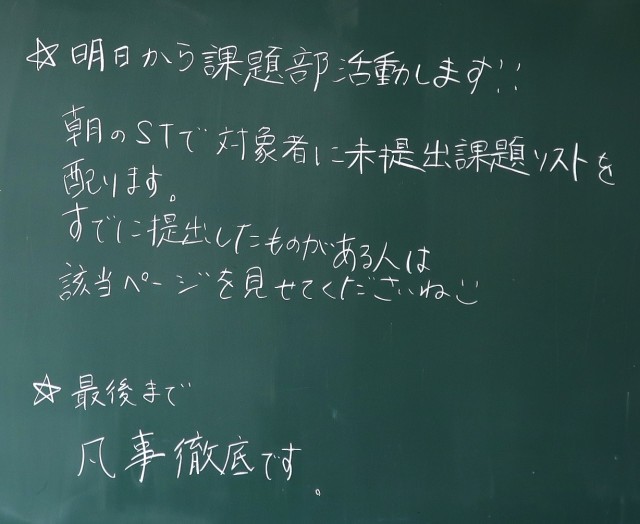 ☆明日から課題部活動します!!
朝のSTで対象者に未提出課題リストを
配ります。
すでに提出したものがある人は
該当ページを見せてくださいね
☆最後まで
凡事徹底です。